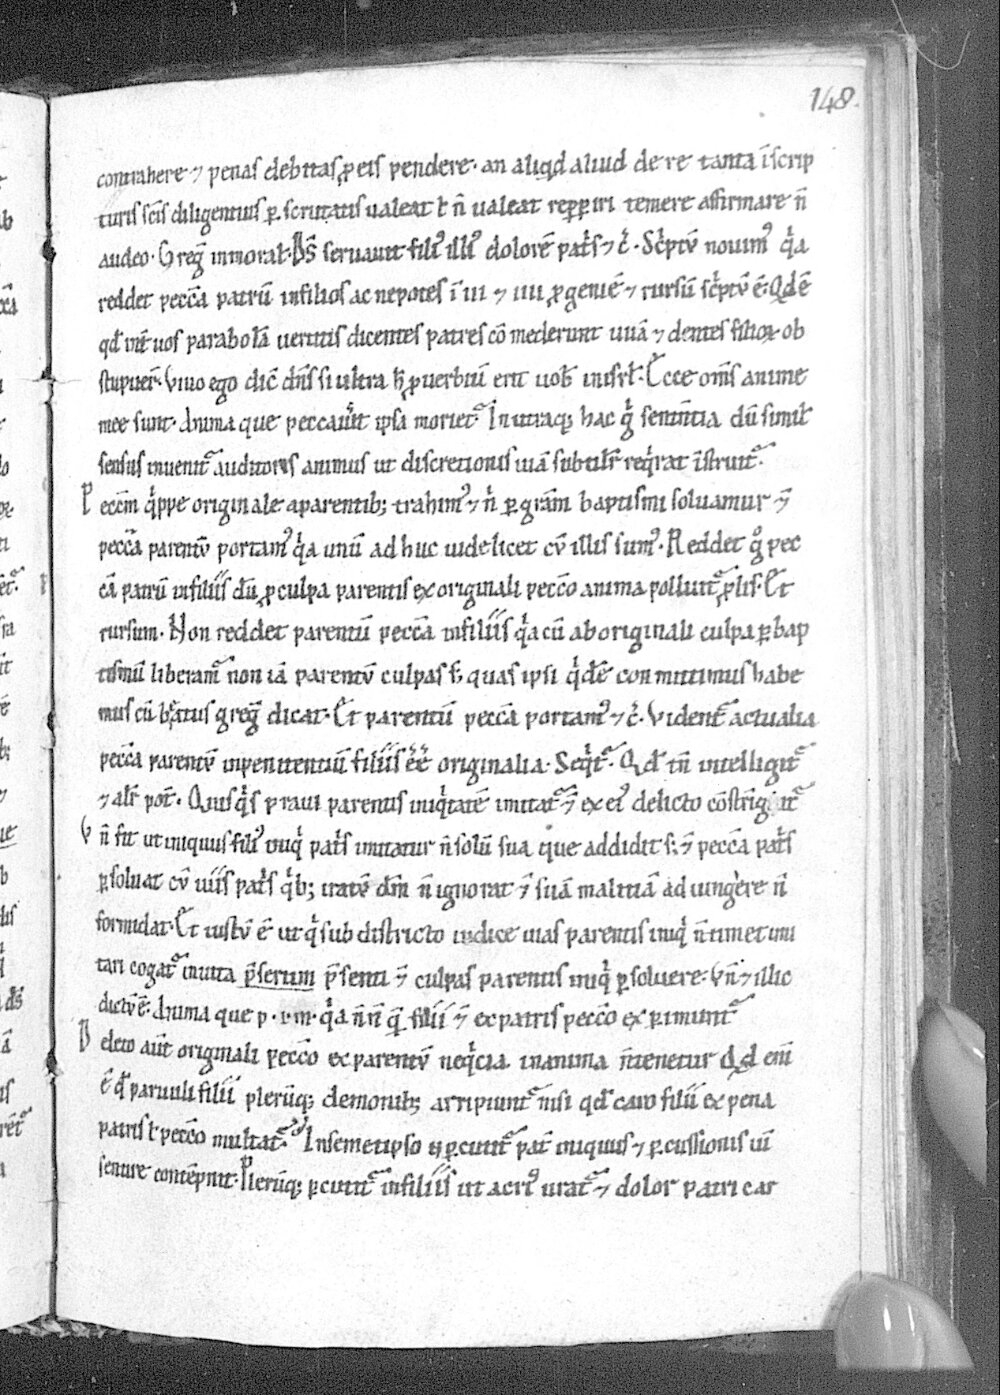 148.
contrahere ⁊ penas debitas ꝓ eis pendere· an aliqd aliud de re tanta ı̄ scrip
turis sc̄is diligentius ꝑ scrutatis ualeat ł n̄ ualeat repꝑiri temere affirmare n̄
audeo· Greg̅ in moral̅· D̅s seruauit filiꝰ illiꝰ dolorē patͥs ⁊ c̅· Scͥptū nouimꝰ qͥa
reddet pecc̄a patrū in filios ac nepotes ı̄ iii ⁊ iiii ꝓgeniē ⁊ rursū scͥptū ē· Qd ē
qd̅ int̄ uos parabolā uertitis dicentes patres cōmederunt uuā ⁊ dentes filioꝝ ob
stupuer̄· Viuo ego dic̄ dn̄s si ultra h̅ ꝓuerbiū erit uob̅ in isrl̅· Ecce om̄s anime
mee sunt· Anima que peccauı̄t ipsa morietᷣ· In utraqꝫ hac gͥ sentn̄tia dū simil̅
sensus inuenitᷣ auditoris animus ut discretionis uiā subtilr̄ reqͥrat ı̄struitᷣ·
Pecc̄m qͥppe originale a parentibꝫ trahimꝰ ⁊ nͥ ꝑ grām baptismi soluamur ⁊̄
pecc̄a parentū portamꝰ qͥa unū ad huc uidelicet cū illis sumꝰ· Reddet gͦ pec
c̄a patrū in filiis dū ꝓ culpa parentis ex originali pecc̄o anima polluitᷣ ꝓlis· Et
rursum· Non reddet parentū pecc̄a in filiis qͥa cū ab originali culpa ꝑ bap
tismū liberamᷣ non iā parentū culpas s; quas ipsi qͥdē committimus habe
mus cū b̄atus greg̅ dicat· Et parentū pecc̄a portamꝰ ⁊ c̅· Videntᷣ actualia
pecc̄a parentū inpenitentiū filiis ēē originalia· Seqͥtᷣ· Qd̅ tn̄ intelligitᷣ
⁊ alr̄ pot̄· Quisqͥs praui parentis iniqͥtatē imitatᷣ ⁊̄ ex eiꝰ delicto cōstrīgitᷣ
Vn̄ fit ut iniquus filiꝰ iniqͥ patͥs imitatur n̄ solū sua que addidit s; ⁊̄ pecc̄a patͥs
ꝑsoluat cū uiis patͥs qͥbꝫ iratū dm̄ n̄ ignorat ⁊̄ suā malitiā ad iungere n̄
formidat· Et iustū ē ut qͥ sub districto iudice uias parentis iniqͥ n̄ timet imi
tari cogatᷣ in uita p̄serum p̄senti ⁊̄ culpas parentis iniqͥ ꝑsoluere· Vn̄ ⁊ illic
dictū ē· Anima que p · i· m· qͥa n̄n̄ qͣ filii ⁊̄ ex patris pecc̄o ex ꝑimuntᷣ
Deleto aūt originali pecc̄o ex parentū neqͥcia in anima n̄ tenetur Qd enī
ē qd̅ paruuli filii plerūqꝫ demonibꝫ arripiuntᷣ nisi qd̅ caro filii ex pena
patris ł pecc̄o multatᷣ· In semetipso ꝑcutitᷣ pat̄ iniquus ⁊ ꝑcussionis uī
sentire contēpnit· Plerūqꝫ ꝑcutitᷣ in filiis ut acriꝰ uratᷣ ⁊ dolor patri car